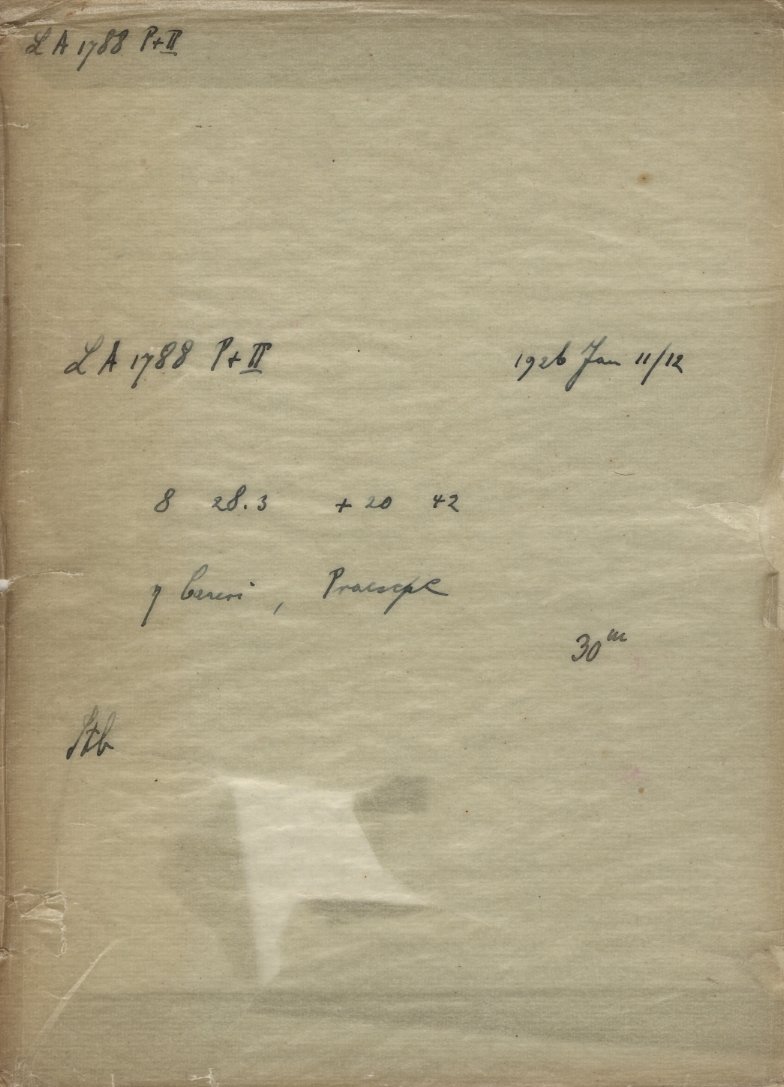 LA 1788 P+II
LA 1788 P+II 1926 Jan 11/12
8 28.3 +20 42
η Cancri , Praesepe
30ᵐ
Stb